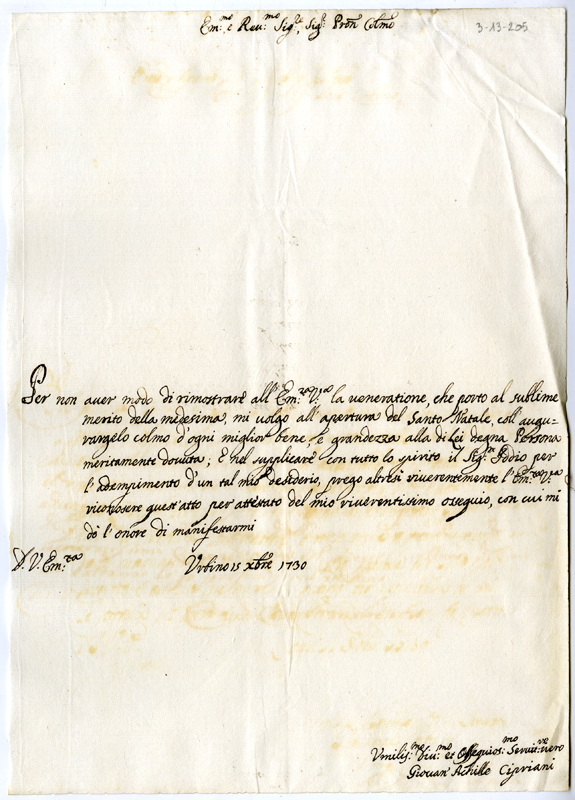 Em:mo e Reu:mo Sig:re, Sig:re Pron Colmo
3-13-205
Per non aver modo di rimostrare all'Em:za V:ra la veneratione, che porto al sublime
merito della medesima, mi volgo all'apertura del Santo Natale, coll'augu-
rargelo colmo d'ogni miglior bene, e grandezza alla di Lei degna Persona
meritamente dovuta; E nel supplicare con tutto lo spirito il Sig:re Iddio per
l'adempimento d'un tal mio desiderio, prego altresi viverentemente l'Em:za V:ra
ricevere quest'atto per attestato del mio riverentissimo osseguio, con cui mi
dò l'onore di manifestarmi
D. V. Em:za
Urbino 15 xbre 1730
Vmilis:mo Diu:mo et Ossequios:mo Seruit:re uero
Giouan' Achille Cipriani